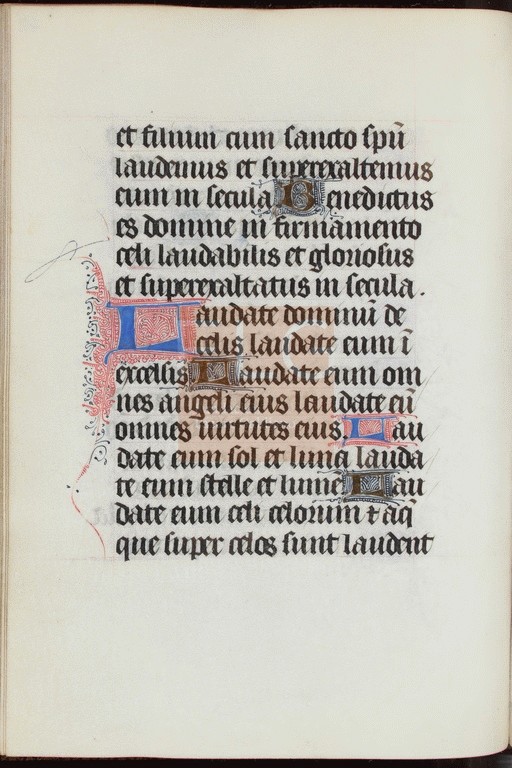 et filium cum sancto spū
laudemus et superexaltemus
eum in secula Benedictus
es domine in firmamento
celi laudabilis et gloriosus
et superexaltatus in secula .
Laudate dominū de
celis laudate eum ī
excelsis Laudate eum om
nes angeli eius laudate eū
omnes uirtutes eius. Lau
date eum sol et luna lauda
te eum stelle et lumē Lau
date eum celi celorum ⁊ aq̄
que super celos sunt laudent